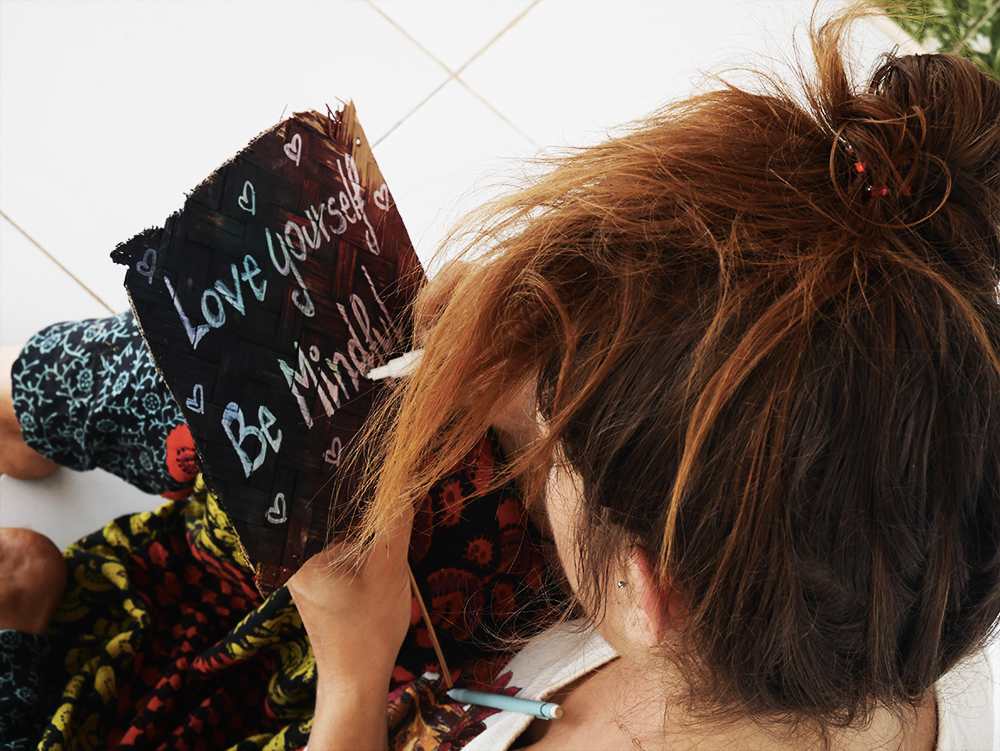 Love yourself
Be Mindful